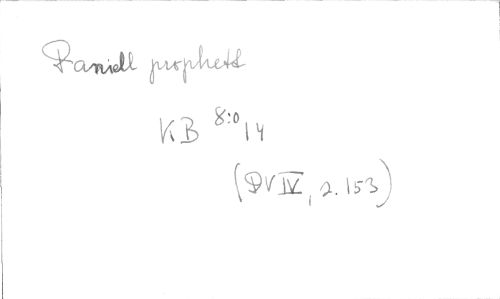 Daniell prophett
KB 8:o 14
(DV IV, 2.153)